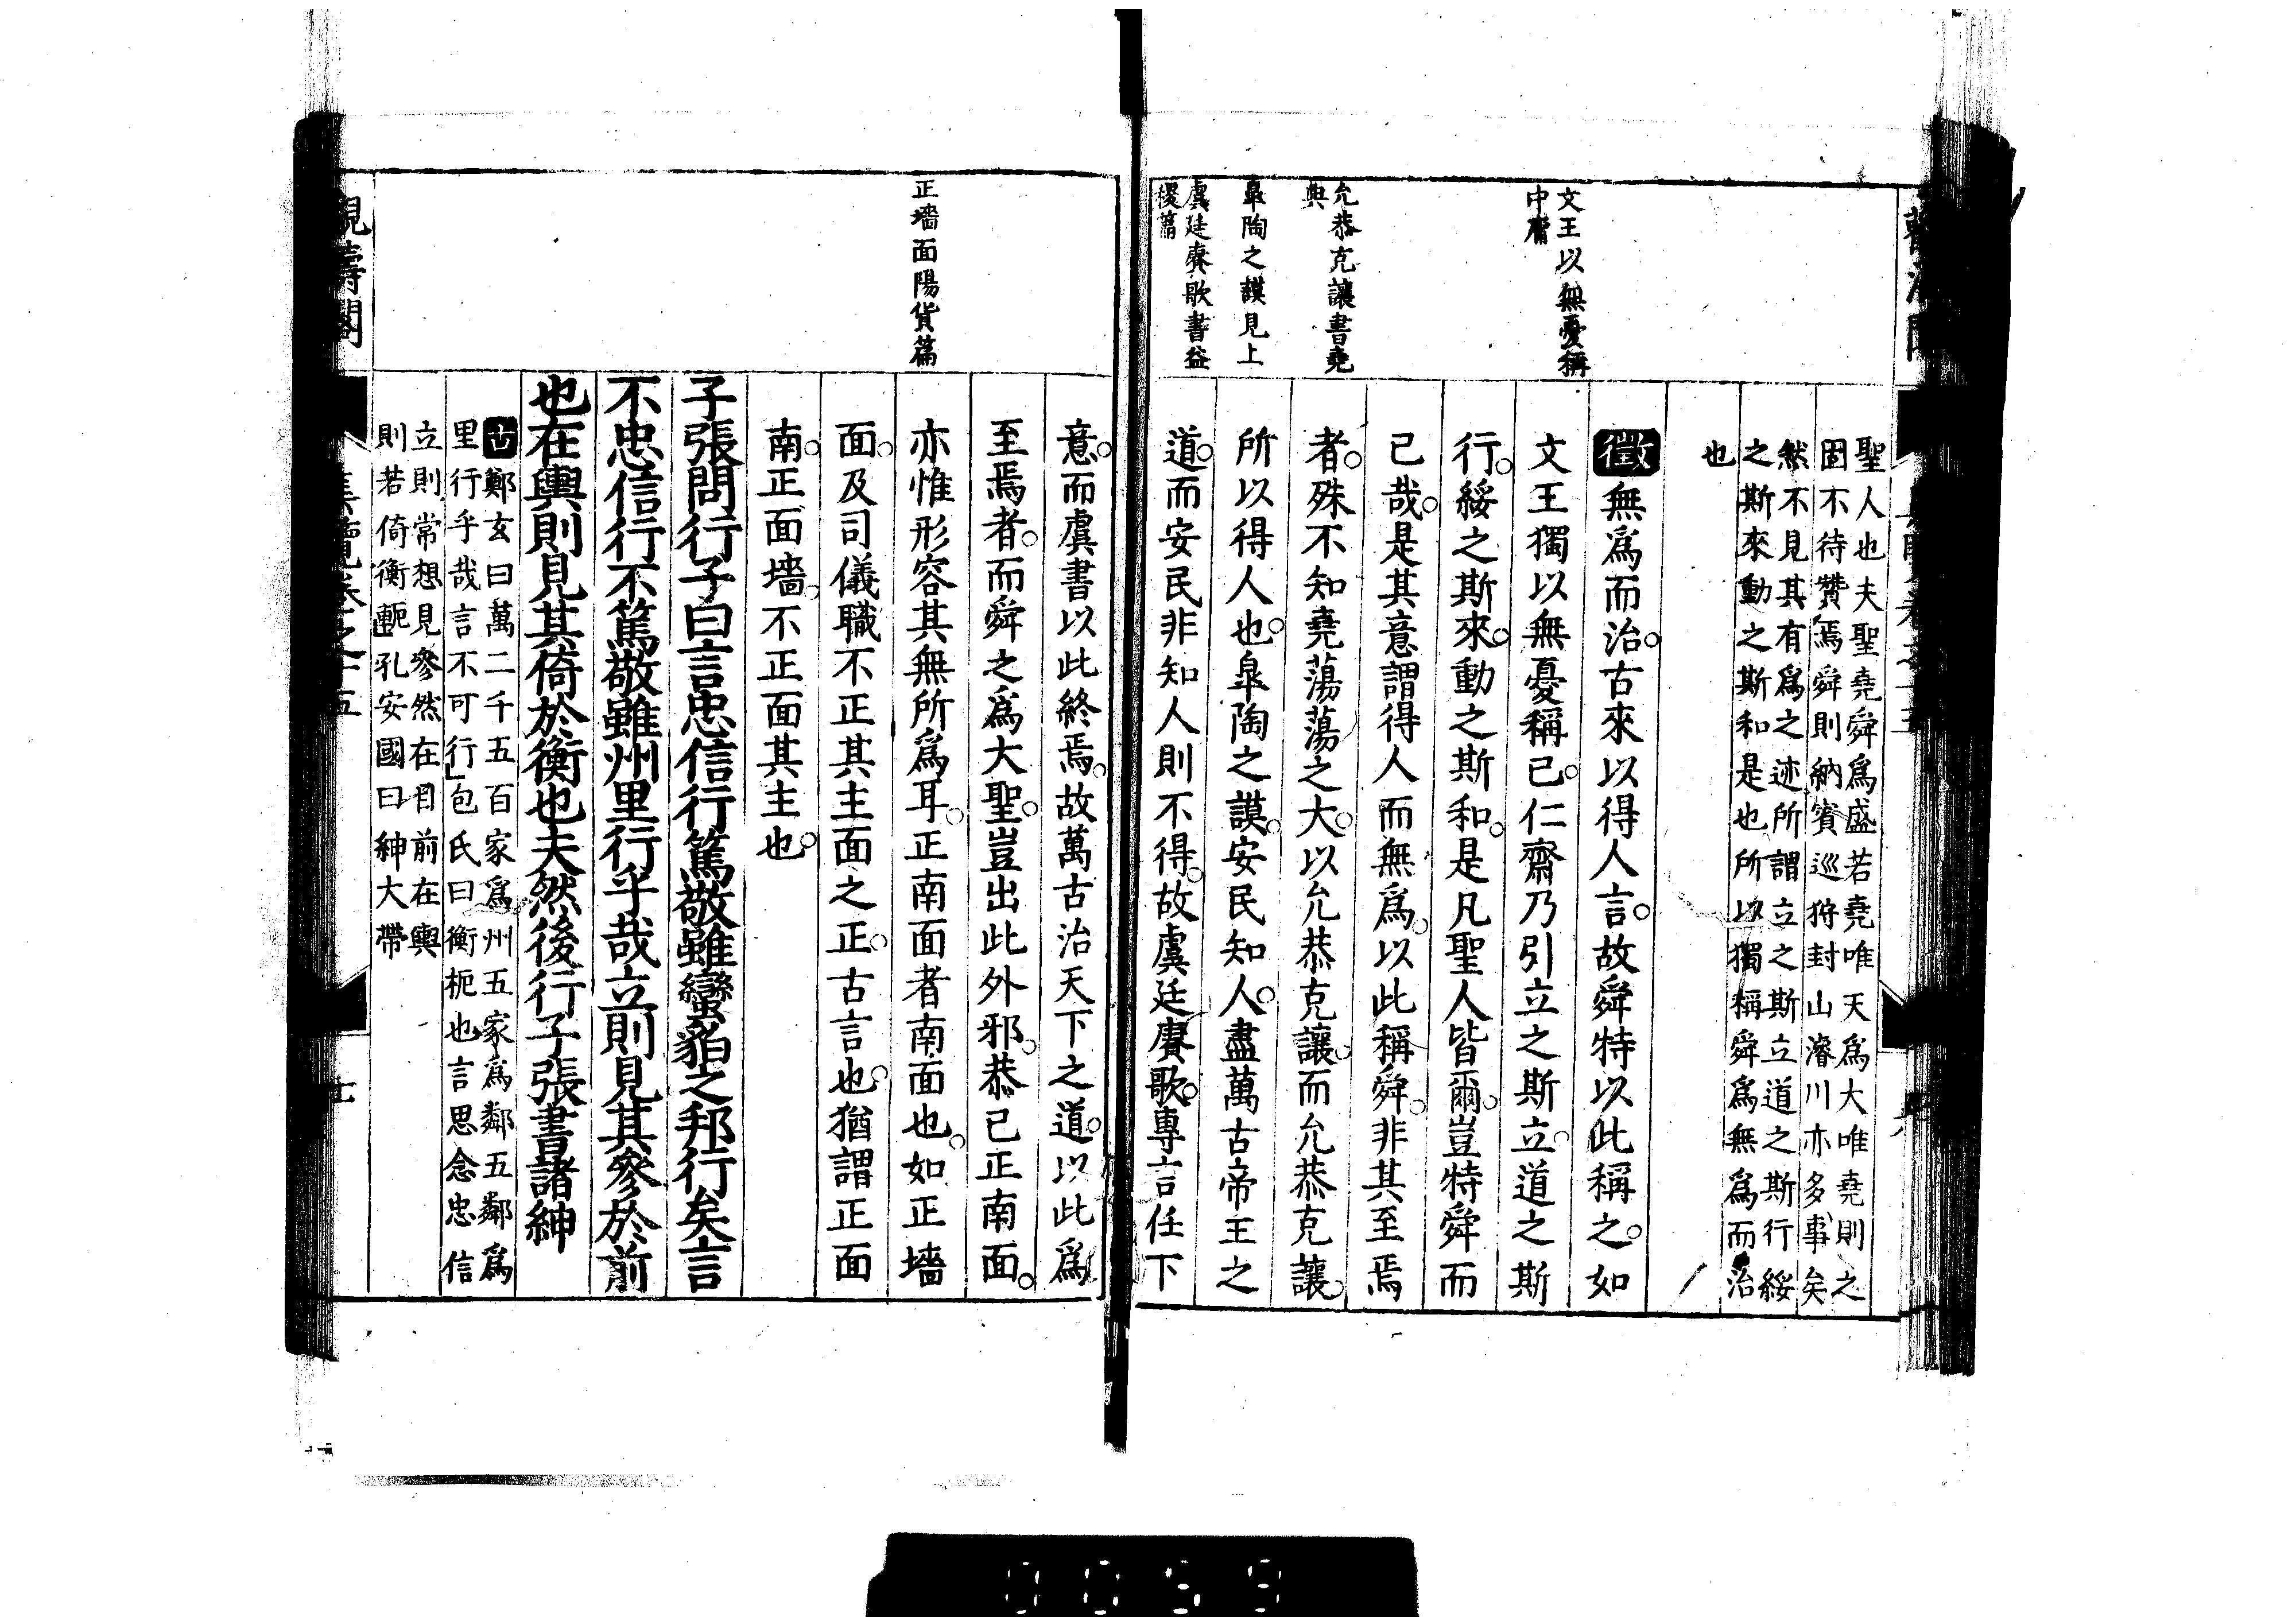 文王以無憂稱
中庸
允恭克讓書堯
典
皐陶之謨見上
虞廷賡歌書益
稷篇
聖人也夫聖堯舜爲盛若堯唯天爲大唯堯則之
固不待贊焉舜則納賓巡狩封山濬川亦多事矣
然不見其有爲之迹所謂立之斯立道之斯行綏
之斯來動之斯和是也所以獨稱舜爲無爲而治
也
徵無爲而治古來以得人言故舜特以此稱之如
文王獨以無憂稱已仁齋乃引立之斯立道之斯
行綏之斯來動之斯和是凡聖人皆爾豈特舜而
已哉是其意謂得人而無爲以此稱舜非其至焉
者殊不知堯蕩蕩之大以允恭克讓而允恭克讓
所以得人也皐陶之謨安民知人盡萬古帝王之
道而安民非知人則不得故虞廷賡歌專言任下
正墻面陽貨篇
意而虞書以此終焉故萬古治天下之道以此爲
至焉者而舜之爲大聖豈出此外邪恭已正南面
亦惟形容其無所爲耳正南面者南面也如正墻
面及司儀職不正其主面之正古言也猶謂正面
南正面墻不正面其主也
子張問行子曰言忠信行篤敬雖蠻貊之邦行矣言
不忠信行不篤敬雖州里行乎哉立則見其參於前
也在輿則見其倚於衡也夫然後行子張書諸紳
古鄭玄曰萬二千五百家爲州五家爲鄰五鄰爲
里行乎哉言不可行包氏曰衡軛也言思念忠信
立則常想見參然在目前在輿
則若倚衡軛孔安國曰紳大帶